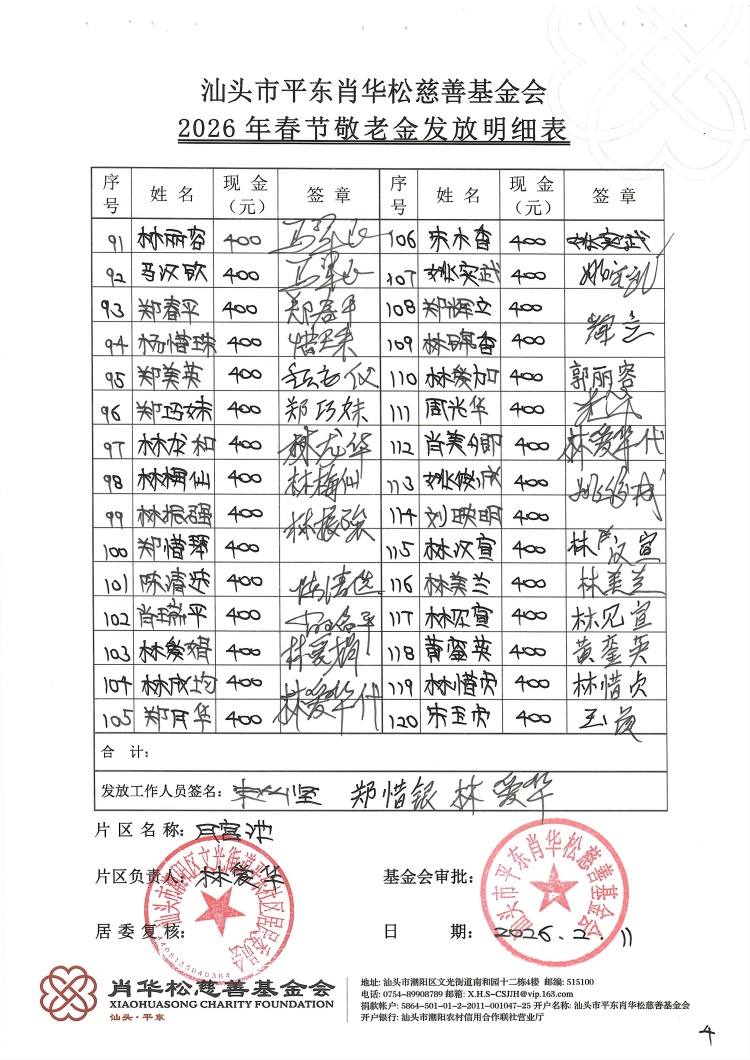 汕头市平东肖华松慈善基金会
2026年春节敬老金发放明细表
序号 姓名 现金（元） 签章 序号 姓名 现金（元） 签章
91 林丽容 400 106 宋木香 400 姚实武
92 马汉钦 400 107 姚实武 400
93 郑春平 400 郑春平 108 郑辉立 400 辉立
94 杨惜珠 400 惜珠 109 林瑞香 400
95 郑美英 400 110 林爱加 400 郭丽容
96 郑巧妹 400 郑巧妹 111 周光华 400 光华
97 林龙和 400 林龙华 112 肖美卿 400 林爱华代
98 林梅仙 400 林梅仙 113 姚俊成 400
99 林振强 400 林振强 114 刘映明 400
100 郑惜琴 400 115 林汉宣 400 林汉宣
101 陈清 400 116 林美兰 400 林美兰
102 肖瑞平 400 117 林见宣 400 林见宣
103 林爱娟 400 林爱娟 118 黄銮英 400 黄銮英
104 林成均 400 林爱华代 119 林惜贞 400 林惜贞
105 郑月华 400 120 宋玉贞 400 玉贞
合 计：
发放工作人员签名： 郑惜银 林爱华
片区名称：
片区负责人：林爱华 基金会审批：
居委复核： 日 期：2026.2.11
汕头市平东肖华松慈善基金会
肖华松慈善基金会
XIAOHUASONG CHARITY FOUNDATION
汕头·平东
地址: 汕头市潮阳区文光街道南和园十二栋4楼 邮编: 515100
电话: 0754-89908789 邮箱: X.H.S-CSJJH@vip.163.com
捐款帐户: 5864-501-01-2-2011-001047-25 开户名称: 汕头市平东肖华松慈善基金会
开户银行: 汕头市潮阳农村信用合作联社营业厅
4